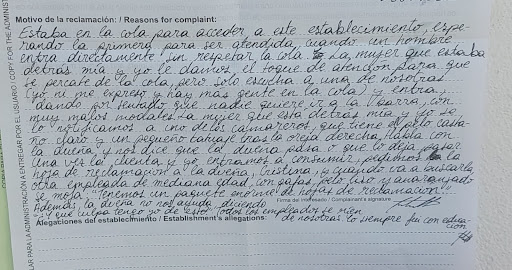 Motivo de la reclamación: / Reasons for complaint:
Estaba en la cola para acceder a este establecimiento, espe-
rando la primera para ser atendida, cuando un hombre
entra directamente sin respetar la cola. La mujer que estaba
detrás mía y yo le damos el toque de atención para que
se percate de la cola, pero solo escucha a una de nosotras
(yo ni me expreso y hay más gente en la cola) y entra,
dando por sentado que nadie quiere ir a la barra, con
muy malos modales. La mujer que está detrás mía y yo se
lo notificamos a uno de los camareros, que tiene el pelo casta-
no claro y un pequeño tatuaje tras la oreja derecha, habla con
la dueña, y nos dice que la dueña pasa o que lo deja pasar
Una vez la clienta y yo entramos a consumir, pedimos la
hoja de reclamación a la dueña, Cristina, y cuando va a buscarla
otra empleada de mediana edad, con gafas, pelo liso y anaranjado
se moja "Tenemos un paquete enorme de hojas de reclamación".
Además, la dueña no nos ayuda diciendo
Firma del interesado / Complainant's signature
"¿Y qué culpa tengo yo de eso?" Todos los empleados se rien
Alegaciones del establecimiento / Establishment's allegations:
de nosotras. Yo siempre fui con educa-
ción
LAR PARA LA ADMINISTRACIÓN A ENTREGAR POR EL USUARIO \ COPY FOR THE ADMINIS